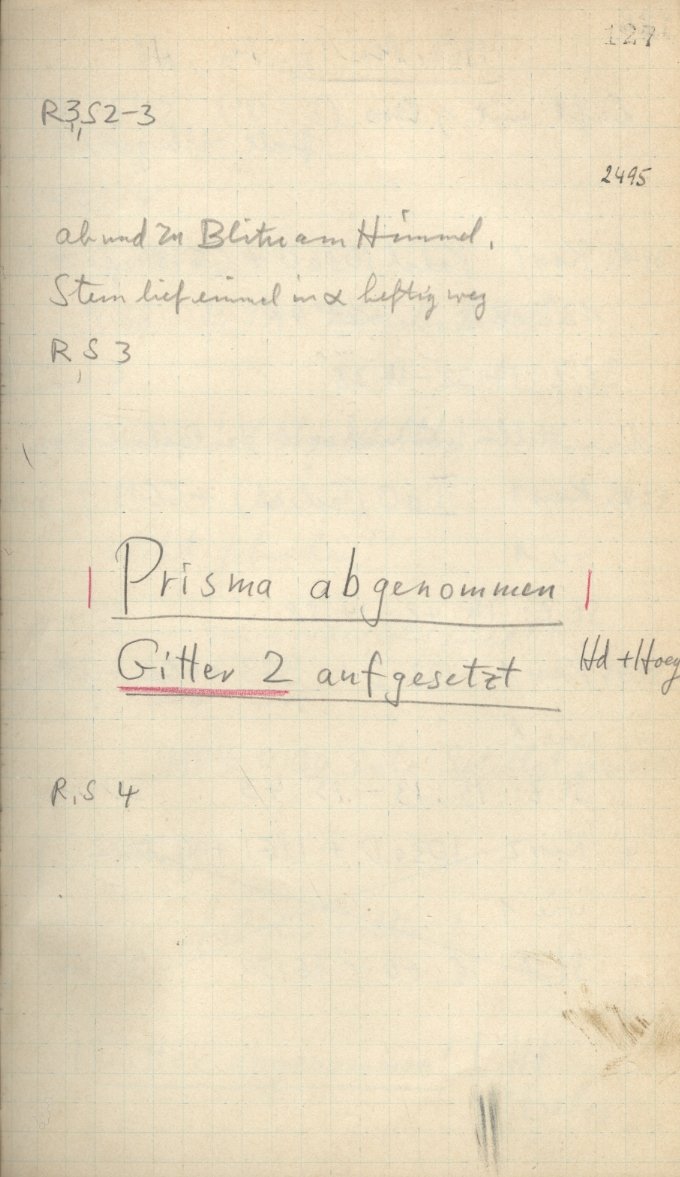 127
R3,S2-3
2495
ab und zu Blitze am Himmel.
Stern lief einmal in α heftig weg
R,S 3
Prisma abgenommen
Gitter 2 aufgesetzt
Hd + Hoeg
R,S 4